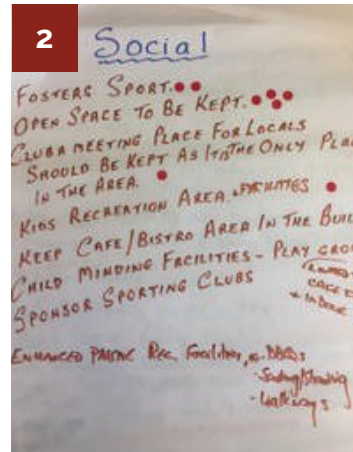 2
Social
FOSTERS SPORT.
OPEN SPACE TO BE KEPT.
CLUB A MEETING PLACE FOR LOCALS
SHOULD BE KEPT AS IT IS THE ONLY PLA
IN THE AREA.
KIDS RECREATION AREA & FACILITIES
KEEP CAFE/BISTRO AREA IN THE BUIL
CHILD MINDING FACILITIES - PLAY GRO
SPONSOR SPORTING CLUBS
ENHANCED Rec. Facilities, BBQs
- Seating/Shading
- Walkways